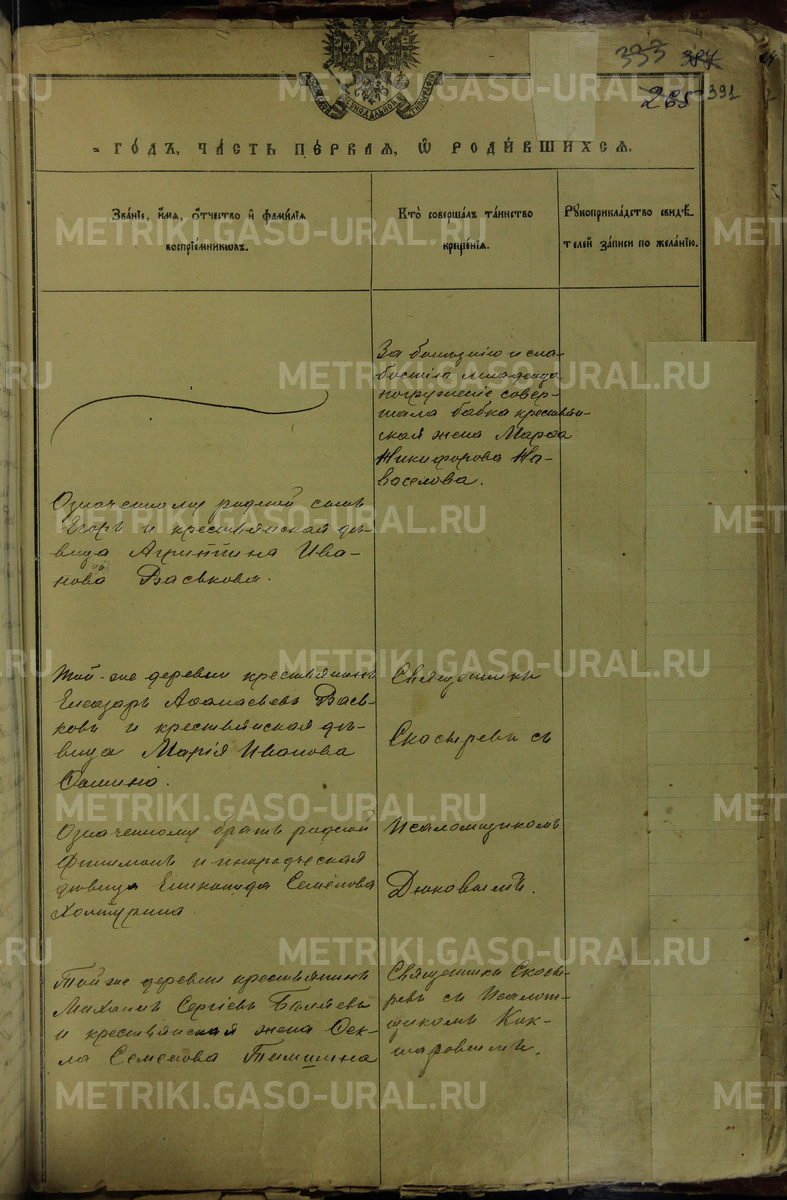 333 387
265 391
СѴНОДАЛЬНОЙ
ГО́ДЪ, ЧА́СТЬ ПЕ́РВАЯ, Ѡ҆ РОДИ́ВШИХСЯ.
Зва́нїе, и҆́мя, ѻ҆́тчество и҆ фами́лїя
воспрїе́мниковъ.
Кто̀ соверша́лъ та́инство
креще́нїя.
Рꙋкоприкла́дство свидѣ́-
телей за́писи по жела́нїю.
За болѣзнію и сла-
бостію младенца
погруженіе совер-
шала бабка крестьян-
ская жена Марѳа
Никифорова Но-
воселова.
Означенному родной сынъ
Егоръ и крестьянская дѣ-
вица Агриппина Ива-
нова Васькова.
Той-же деревни крестьянинъ
Елеазаръ Аѳанасьевъ Вась-
ковъ и крестьянская дѣ-
вица Марія Иванова
Священникъ
Скосыревъ съ
Означенному братъ родной
Филимонъ и инородческая
дѣвица Епихида Семенова
Псаломщикомъ
Дюковымъ.
Той же деревни крестьянинъ
Михаилъ Сергіевъ Бѣляевъ
и крестьянская жена Ѳек-
ла Семенова Тимшина
Священникъ Скосы-
ревъ съ Псалом-
щикомъ Кок-
шаровымъ.
METRIKI.GASO-URAL.RU